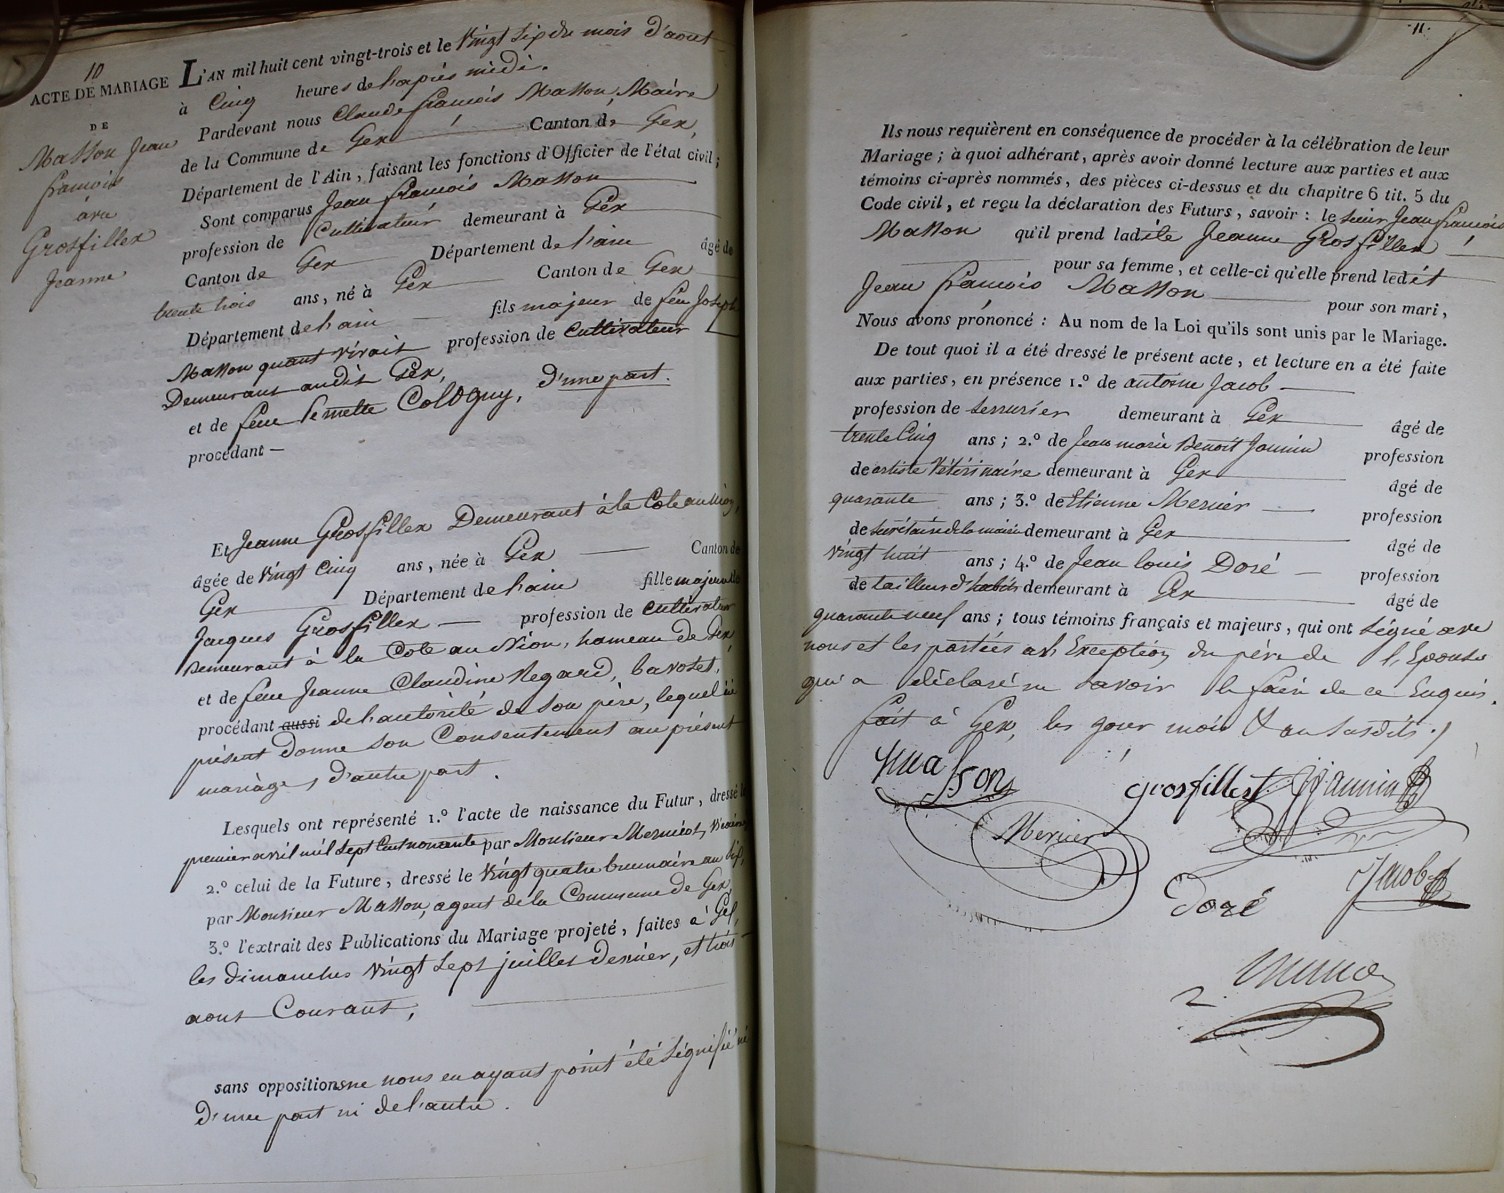 10
ACTE DE MARIAGE
DE
Masson Jean
françois
avec
Grosfillex
Jeanne
L'AN mil huit cent vingt-trois et le vingt six du mois d'aout
à Cinq heures de l'après midi.
Pardevant nous Claude françois Masson, Maire
de la Commune de Gex Canton de Gex
Département de l'Ain, faisant les fonctions d'Officier de l'état civil;
Sont comparus Jean françois Masson
profession de Cultivateur demeurant à Gex
Canton de Gex Département de l'ain âgé de
trente trois ans, né à Gex Canton de Gex
Département de l'ain fils majeur de feu Joseph
Masson quant vivait profession de Cultivateur
Demeurant audit Gex,
et de feue Pernette Cologny, d'une part.
procédant
Et Jeanne Grosfillex Demeurant à la Cote au Nion,
âgée de vingt Cinq ans, née à Gex Canton de
Gex Département de l'ain fille majeure de
Jacques Grosfillex profession de Cultivateur
Demeurant à la Cote au Nion, hameau de Gex
et de feue Jeanne Claudine Regard,
procédant aussi de l'autorité de son père, lequel ici
présent Donne son Consentement au présent
mariage, d'autre part.
Lesquels ont représenté 1.º l'acte de naissance du Futur, dressé le
premier avril mil sept Cent nonante par Monsieur
2.º celui de la Future, dressé le vingt quatre brumaire an six,
par Monsieur Masson, agent de la Commune de Gex,
3.º l'extrait des Publications du Mariage projeté, faites à Gex,
les dimanches vingt sept juillet Dernier, et trois
aout Courant,
sans oppositions ne nous en ayant point été Signifié ni
D'une part ni de l'autre.
11
Ils nous requièrent en conséquence de procéder à la célébration de leur
Mariage; à quoi adhérant, après avoir donné lecture aux parties et aux
témoins ci-après nommés, des pièces ci-dessus et du chapitre 6 tit. 5 du
Code civil, et reçu la déclaration des Futurs, savoir: le Sieur Jean françois
Masson qu'il prend ladite Jeanne Grosfillex
pour sa femme, et celle-ci qu'elle prend ledit
Jean françois Masson pour son mari,
Nous avons prononcé: Au nom de la Loi qu'ils sont unis par le Mariage.
De tout quoi il a été dressé le présent acte, et lecture en a été faite
aux parties, en présence 1.º de antoine Jacob
profession de Serrurier demeurant à Gex âgé de
trente Cinq ans; 2.º de Jean marie Benoit Jannin profession
de artiste Vétérinaire demeurant à Gex âgé de
quarante ans; 3.º de Etienne Mercier profession
de Secrétaire de la mairie demeurant à Gex âgé de
vingt huit ans; 4.º de Jean Louis Doré profession
de tailleur d'habits demeurant à Gex âgé de
quarante neuf ans; tous témoins français et majeurs, qui ont Signé avec
nous et les parties à l'Exception du père de l'Epouse
qui a déclaré ne savoir le faire de ce Enquis.
fait à Gex, les jour mois & an susdits.
Masson
grosfillex
Jannin
Mercier
Jacob
Doré